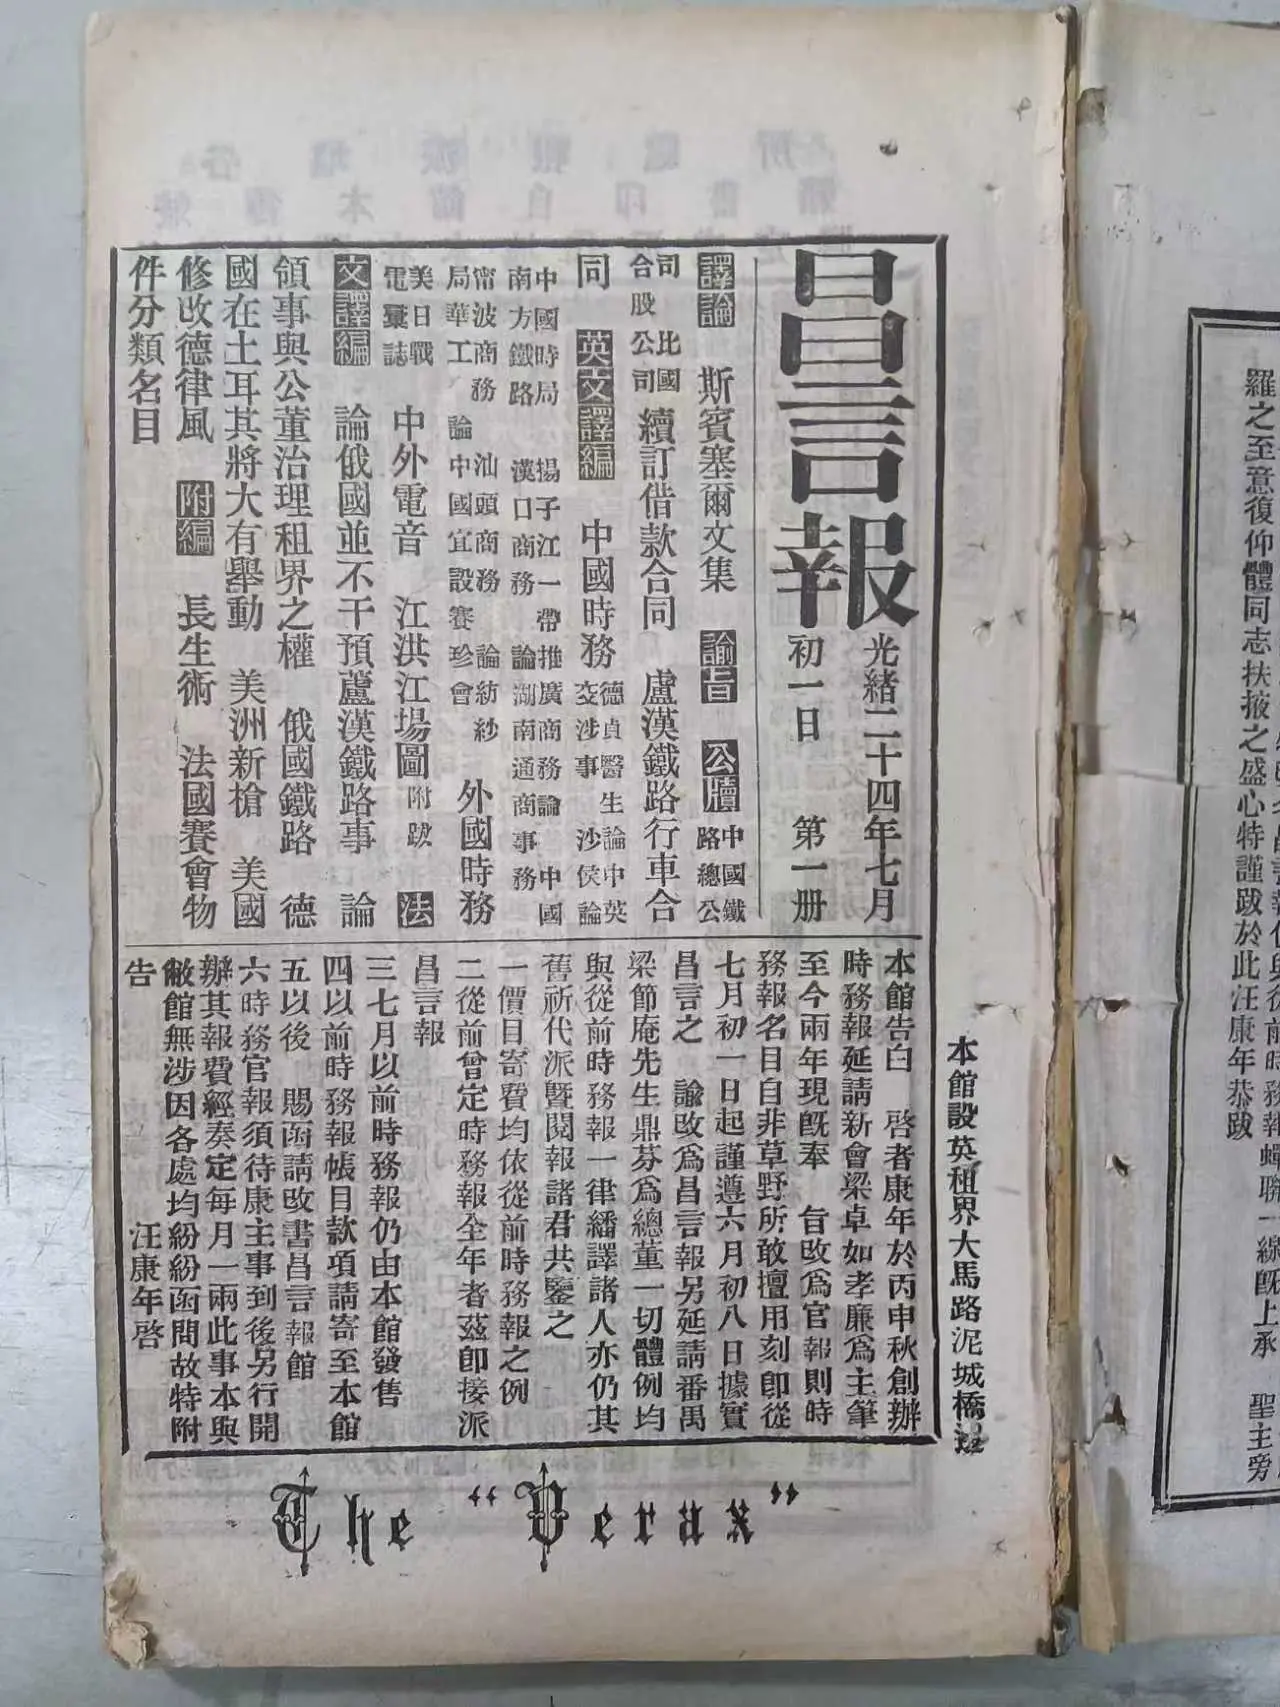 昌言報
光緒二十四年七月
初一日　第一册
譯論　斯賓塞爾文集　諭旨　公牘　中國鐵路總公
司　比國合股公司　續訂借款合同　盧漢鐵路行車合
同　英文譯編　中國時務　德貞醫生論中英交涉事　沙侯論
中國時局　揚子江一帶推廣商務論　中國
南方鐵路　漢口商務　論湖南通商事務
甯波商務　汕頭商務　論紡紗
局華工　論中國宜設賽珍會　外國時務
美日戰電彙誌　中外電音　江洪江場圖附跋　法
文譯編　論俄國並不干預蘆漢鐵路事　論
領事與公董治理租界之權　俄國鐵路　德
國在土耳其將大有舉動　美洲新槍　美國
修改德律風　附編　長生術　法國賽會物
件分類名目
本館告白　啓者康年於丙申秋創辦
時務報延請新會梁卓如孝廉爲主筆
至今兩年現旣奉　旨改爲官報則時
務報名目自非草野所敢擅用刻卽從
七月初一日起謹遵六月初八日據實
昌言之　諭改爲昌言報另延請番禺
梁節庵先生鼎芬爲總董一切體例均
與從前時務報一律繙譯諸人亦仍其
舊祈代派曁閱報諸君共鑒之
一價目寄費均依從前時務報之例
二從前曾定時務報全年者茲卽接派
昌言報
三七月以前時務報仍由本館發售
四以前時務報帳目款項請寄至本館
五以後　賜函請改書昌言報館
六時務官報須待康主事到後另行開
辦其報費經奏定每月一兩此事本與
敝館無涉因各處均紛紛函問故特附
告　汪康年啓
本館設英租界大馬路泥城橋
The "Verax"
羅之至意復仰體同志扶掖之盛心特謹跋於此汪康年恭跋
聖主旁